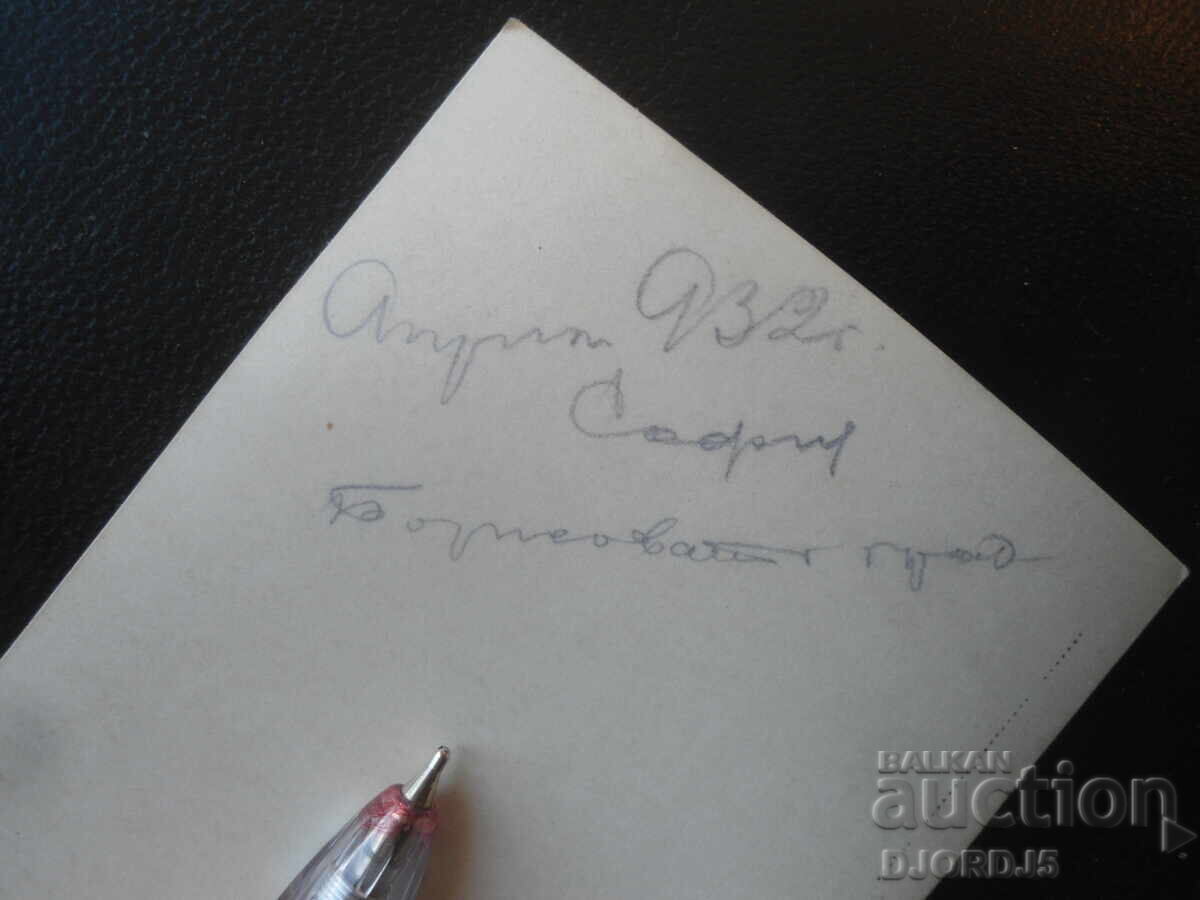 Април 932 г.
София
Борисовата град
BALKAN
auction
DJORDJ5